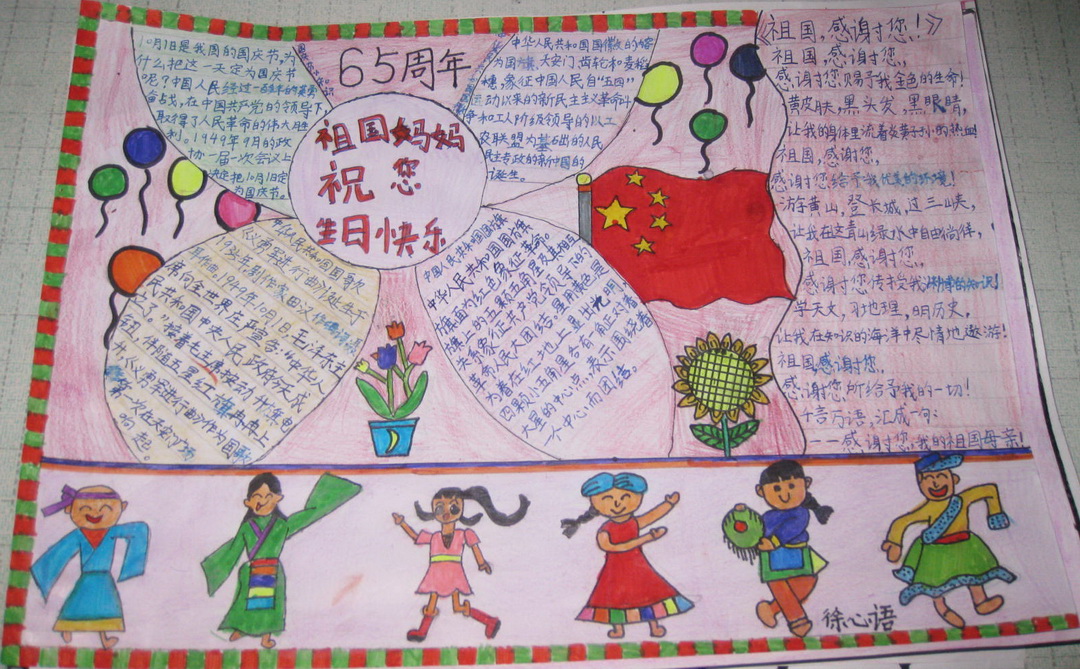 10月1日是我周的国庆节,为
什么把这一天定为国庆节
呢?中国人民经过一百多年的英勇
奋战,在中国共产党的领导下,
取得了人民革命的伟大胜
利。1949年9月的政
协一届一次会议上
决定把10月1日定
为国庆节。
65周年
祖国妈妈
祝 您
生日快乐
中华人民共和国国徽的
为国旗、天安门、齿轮和麦稻
穗,象征中国人民自“五四”
运动以来的新民主主义革命斗
争和工人阶级领导的以工
农联盟为基础的人民
民主专政的新中国的
诞生。
中华人民共和国国歌
《义勇军进行曲》处女于
1935年,剧作家田汉作词,
作曲。1949年10月1日,毛泽东主
席向全世界庄严宣告:“中华人
民共和国中央人民政府今天成
立了”接着毛主席按动升旗电
钮,伴随五星红旗冉冉上
升,《义勇军进行曲》作为国歌
第一次在天安门广场
响起。
中国人民共和国国旗
中华人民共和国国旗旗
面为红色,象征革命。
旗上的五颗五角星及其相互
关系象征共产党领导下的
革命人民大团结。星用黄色
为着在红地上显出光明,
四颗小五角星各有一角正对着
大星的中心点,表示围绕着
一个中心而团结。
《祖国,感谢您!》
祖国,感谢您,
感谢您赐予我金色的生命!
黄皮肤,黑头发,黑眼睛,
让我的身体里流着炎黄子孙的热血!
祖国,感谢您,
感谢您给予我优美的环境!
游黄山,登长城,过三峡,
让我在这青山绿水中自由徜徉,
祖国,感谢您,
感谢您传授我渊博的知识!
学天文,习地理,明历史,
让我在知识的海洋中尽情地遨游!
祖国,感谢您,
感谢您所给予我的一切!
千言万语,汇成一句:
——感谢您,我的祖国母亲!
徐心语